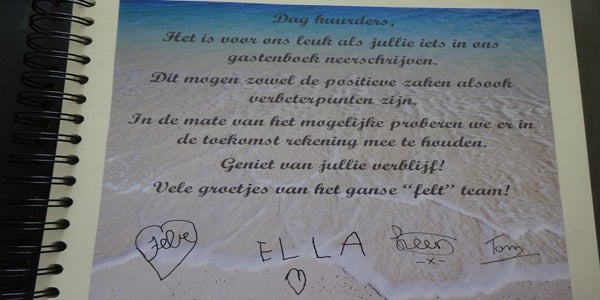 Dag huurders,
Het is voor ons leuk als jullie iets in ons
gastenboek neerschrijven.
Dit mogen zowel de positieve zaken alsook
verbeterpunten zijn.
In de mate van het mogelijke proberen we er in
de toekomst rekening mee te houden.
Geniet van jullie verblijf!
Vele groetjes van het ganse “felt” team!
ELLA Leen Tom
-x-